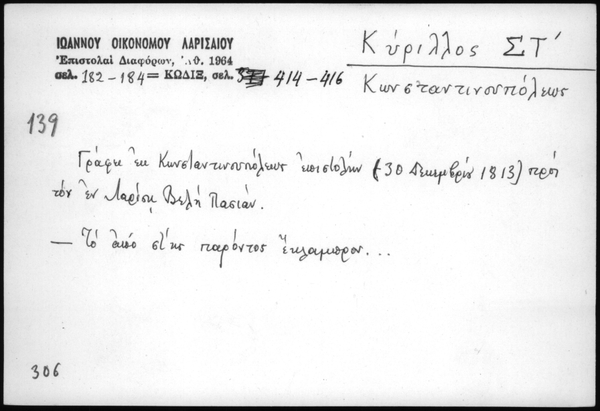 ΙΩΑΝΝΟΥ ΟΙΚΟΝΟΜΟΥ ΛΑΡΙΣΑΙΟΥ
Ἐπιστολαὶ Διαφόρων, Ἀθ. 1964
σελ. 182-184 = ΚΩΔΙΞ, σελ. 414-416
Κύριλλος ΣΤ΄
Κωνσταντινουπόλεως
139
Γράφει ἐκ Κωνσταντινουπόλεως ἐπιστολὴν (30 Δεκεμβρίου 1813) πρὸς
τὸν ἐν Λαρίσῃ Βελῆ Πασιᾶν.
— Τὸ ἀπὸ τῆς παρόντος ἔκλαμπρον...
306